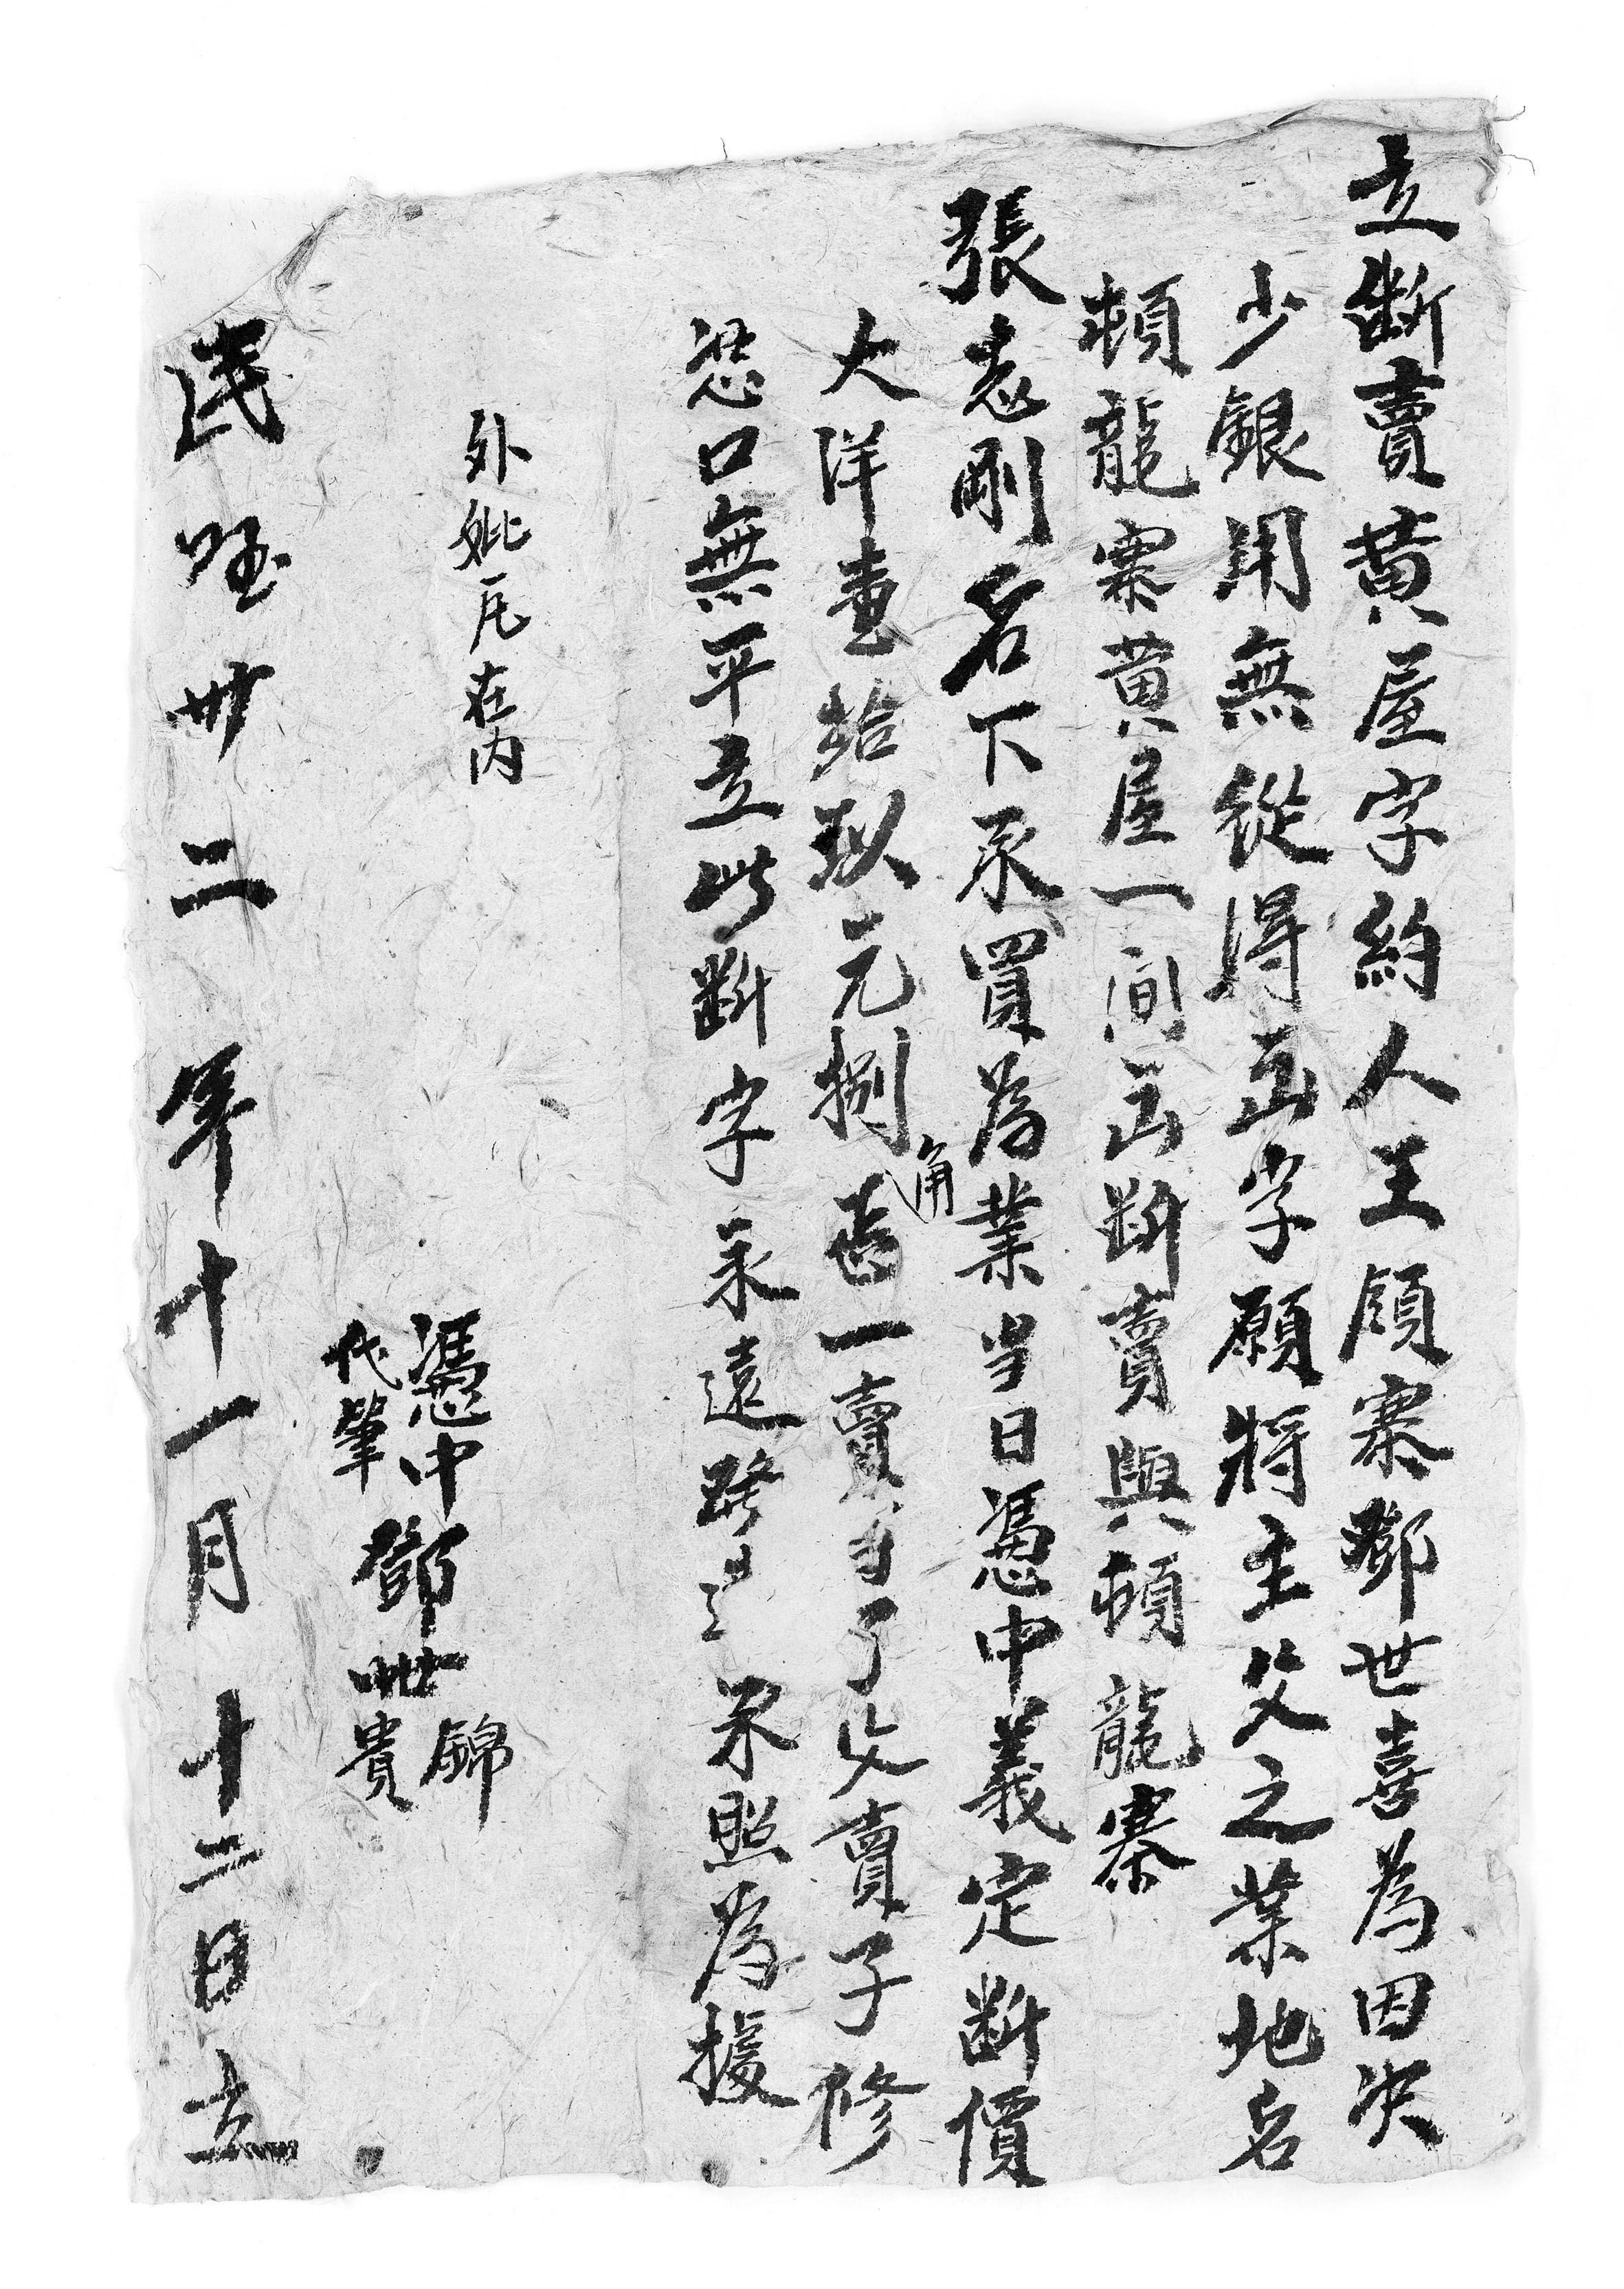 立斷賣黄屋字約人王頎寨鄧世喜為因次
少銀用無從得出字願將主父之業地名
頓龍寨黄屋一间出斷賣與頓龍寨
張志剛名下承買為業当日憑中義定斷價
大洋壹拾玖元捌角 一賣子父賣子修
恐口無平立此斷字永遠存照為援
外在内
憑中鄧世錦
代筆 貴
民國卅二年十一月十二日立